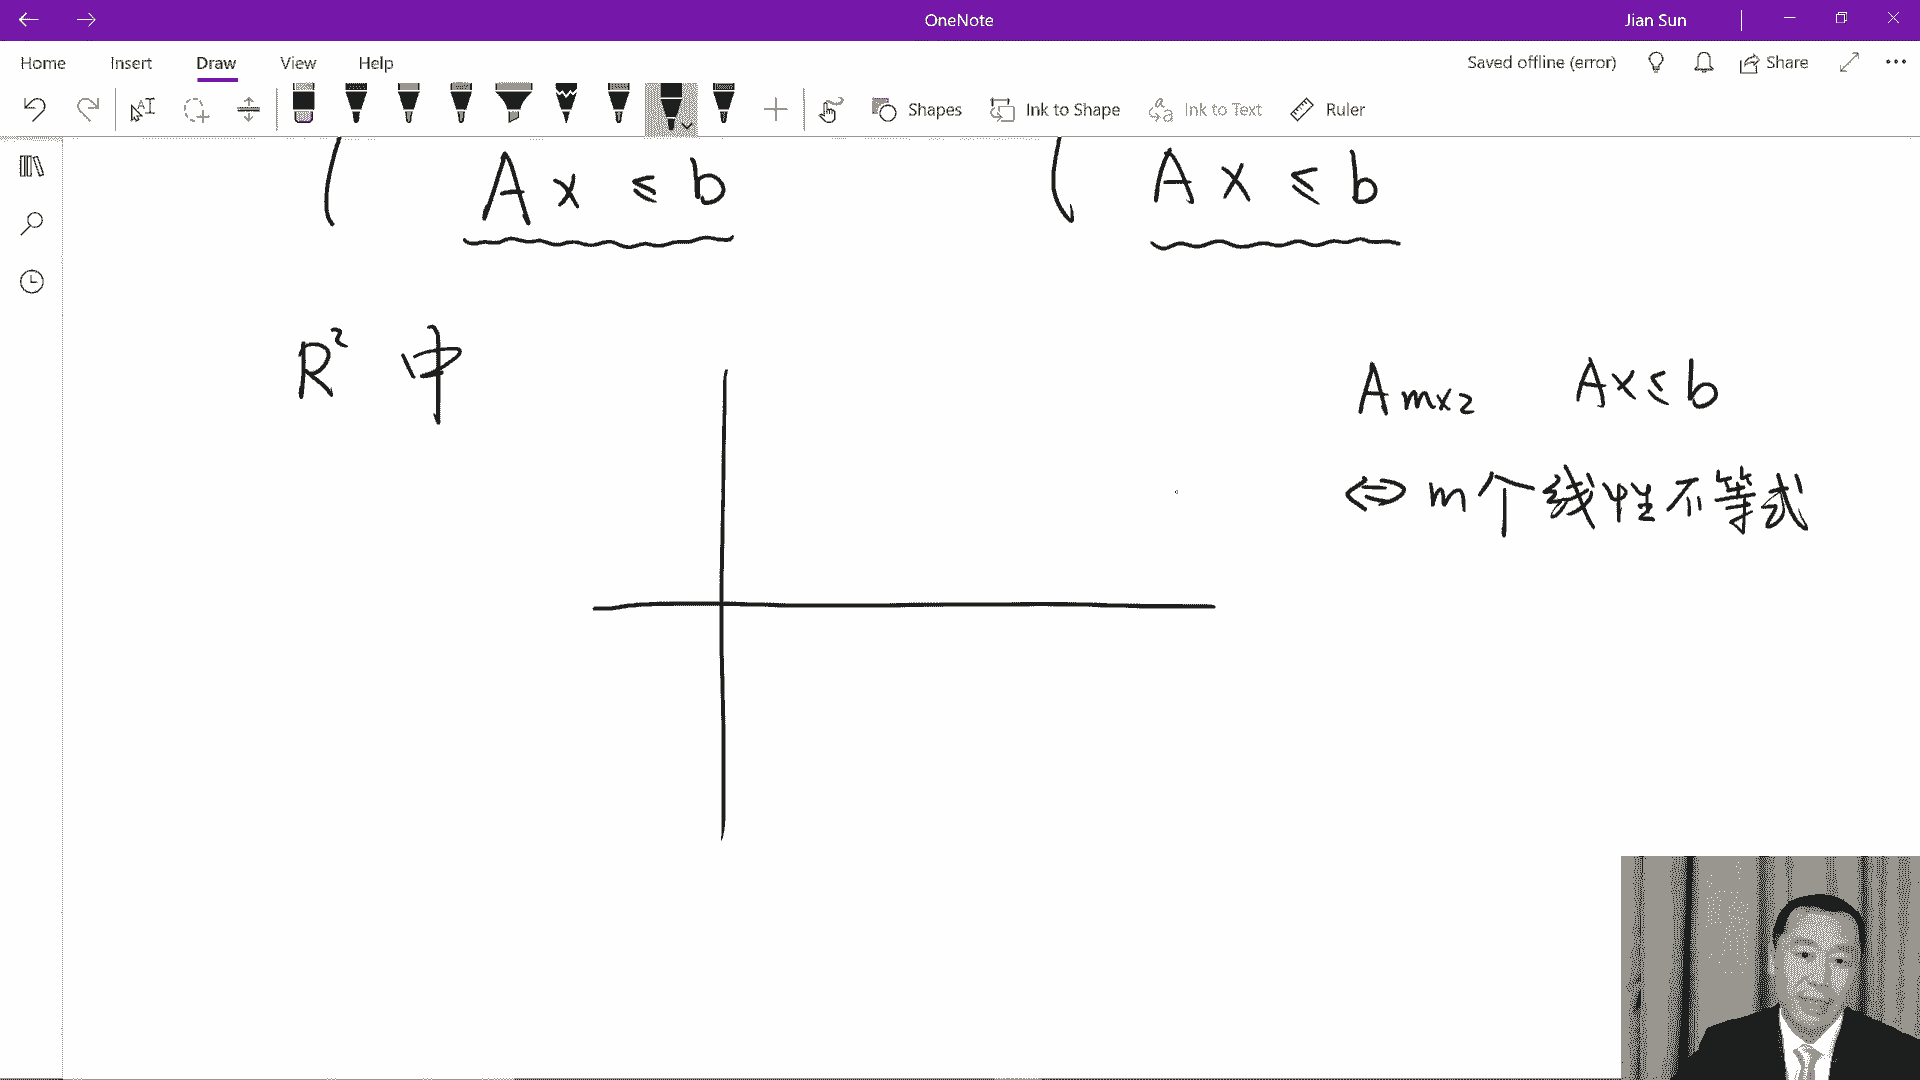 OneNote
Jian Sun
Home Insert Draw View Help
Saved offline (error)
Share
Shapes
Ink to Shape
Ink to Text
Ruler
A x ≤ b
A x ≤ b
R² 中
A m×2 Ax ≤ b
⇔ m个线性不等式